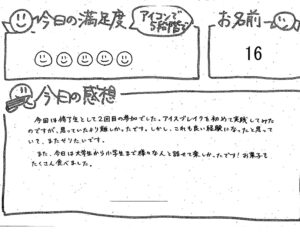 今日の満足度
アイコンで
5段階で
お名前
16
今日の感想
今回は修了生として2回目の参加でした。アイスブレイクを初めて実践してみた
のですが、思っていたより難しかったです。しかし、これも良い経験になったと思っ
ていて、またやりたいです。
また、今日は大学生から小学生まで様々な人と話せて楽しかったです！お菓子も
たくさん食べました。